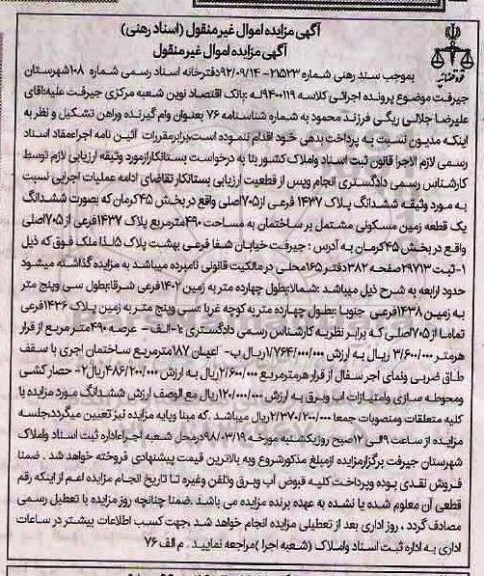 آگهی مزایده اموال غیر منقول (اسناد رهنی)
آگهی مزایده اموال غیر منقول
قوه قضائیه
بموجب سند رهنی شماره ۲۱۵۲۳-۹۲/۰۹/۱۴ دفترخانه اسناد رسمی شماره ۱۰۸ شهرستان
جیرفت موضوع پرونده اجرائی کلاسه ۹۴۰۰۱۱۹ له :بانک اقتصاد نوین شعبه مرکزی جیرفت علیه:آقای
علیرضا جلالی ریگی فرزند محمود به شماره شناسنامه ۷۶ بعنوان وام گیرنده وراهن تشکیل و نظر به
اینکه مدیون نسبت به پرداخت بدهی خود اقدام ننموده است،برابرمقررات آئین نامه اجراءمفاد اسناد
رسمی لازم الاجرا قانون ثبت اسناد واملاک کشور بنا به درخواست بستانکارازمورد وثیقه ارزیابی لازم توسط
کارشناس رسمی دادگستری انجام وپس از قطعیت ارزیابی بستانکار تقاضای ادامه عملیات اجرایی نسبت
به مورد وثیقه ششدانگ پلاک ۱۴۳۷ فرعی از۷۰۵اصلی واقع در بخش ۴۵کرمان که بصورت ششدانگ
یک قطعه زمین مسکونی مشتمل بر ساختمان به مساحت ۴۹۰مترمربع پلاک ۱۴۳۷فرعی از ۷۰۵اصلی
واقع در بخش ۴۵کرمان به آدرس : جیرفت خیابان شفا فرعی بهشت پلاک ۵لذا ملک فوق که ذیل
۱-ثبت ۲۹۷۱۳صفحه ۳۸۲دفتر ۱۶۵محلی در مالکیت قانونی نامبرده میباشد به مزایده گذاشته میشود
حدود اربعه به شرح ذیل میباشد :شمالا:بطول چهارده متر به زمین ۱۴۰۲فرعی شرقا:بطول سی وپنج متر
به زمین ۱۴۳۸فرعی جنوبا :بطول چهارده متر به کوچه غربا:سی وپنج متر به زمین پلاک ۱۴۳۶فرعی
تماما از۷۰۵اصلی که برابر نظریه کارشناس رسمی دادگستری :۱-الف - عرصه ۴۹۰متر مربع از قرار
هرمتر ۳/۶۰۰/۰۰۰ ریال به ارزش ۱/۷۶۴/۰۰۰/۰۰۰ریال ب- اعیان ۱۸۷مترمربع ساختمان اجری با سقف
طاق ضربی ونمای اجر سفال از قرار هرمترمربع ۲/۶۰۰/۰۰۰ریال به ارزش ۴۸۶/۲۰۰/۰۰۰ریال۲- حصار کشی
ومحوطه سازی وامتیازات اب وبرق به ارزش ۱۲۰/۰۰۰/۰۰۰ریال مع الوصف ارزش ششدانگ مورد مزایده با
کلیه متعلقات ومنصوبات جمعا ۲/۳۷۰/۲۰۰/۰۰۰ریال میباشد .که مبنا وپایه مزایده نیز تعیین میگردد.جلسه
مزایده از ساعت ۹الی ۱۲صبح روزیکشنبه مورخه ۹۸/۰۳/۱۹درمحل شعبه اجراءاداره ثبت اسناد واملاک
شهرستان جیرفت برگزارمزایده ازمبلغ مذکورشروع وبه بالاترین قیمت پیشنهادی فروخته خواهد شد . ضمنا
فروش نقدی بوده وپرداخت کلیه قبوض آب وبرق وتلفن وغیره تا تاریخ انجام مزایده اعم از اینکه رقم
قطعی آن معلوم شده یا نشده به عهده برنده مزایده می باشد .ضمنا چنانچه روز مزایده با تعطیل رسمی
مصادف گردد ، روز اداری بعد از تعطیلی مزایده انجام خواهد شد ،جهت کسب اطلاعات بیشتر در ساعات
اداری به اداره ثبت اسناد واملاک (شعبه اجرا )مراجعه نمایید . م الف ۷۶